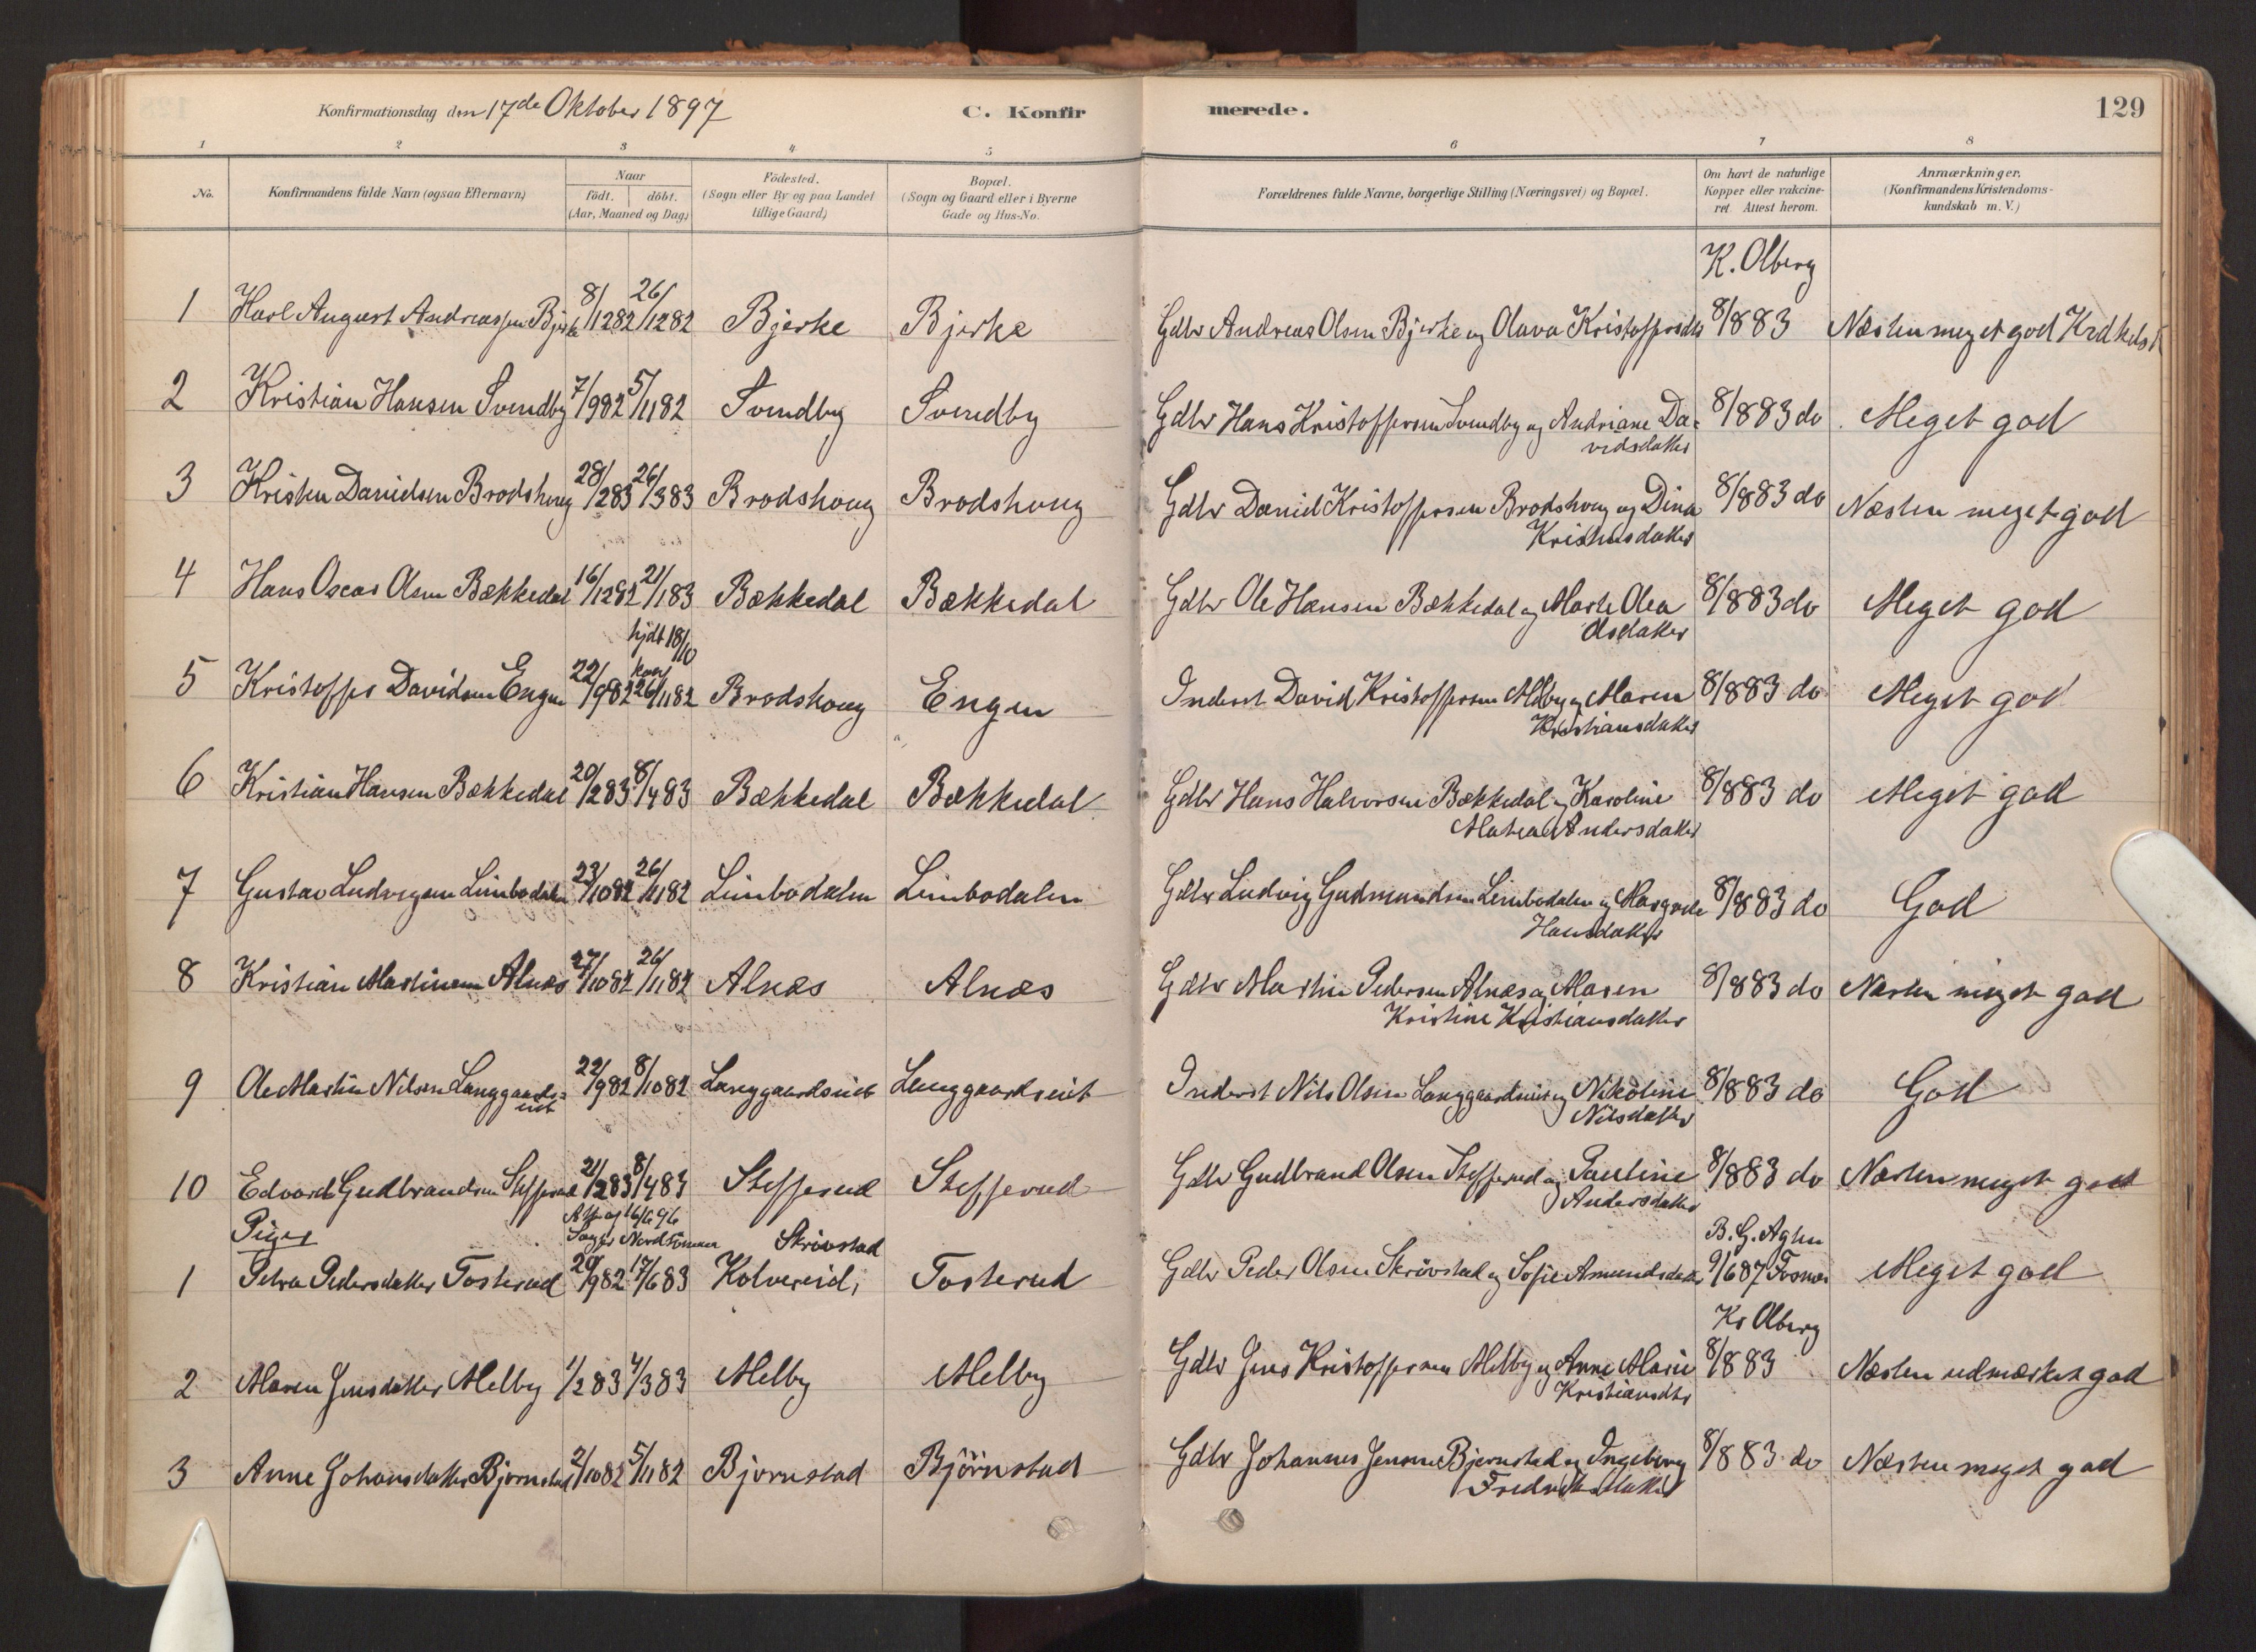 Konfirmationsdag den 17de Oktober 1897
C. Konfirmerede.
129
1 2 3 4 5 6 7 8
No.
Konfirmandens fulde Navn (ogsaa Efternavn)
Naar
födt. döbt.
(Aar, Maaned og Dag)
Födested.
(Sogn eller By og paa Landet
tillige Gaard)
Bopæl.
(Sogn og Gaard eller i Byerne
Gade og Hus-No.
Forældrenes fulde Navne, borgerlige Stilling (Næringsvei) og Bopæl.
Om havt de naturlige
Kopper eller vakcine-
ret. Attest herom.
Anmærkninger.
(Konfirmandens Kristendoms-
kundskab m. V.)
K. Olberg
1 Karl August Andreassen Bjerke 8/1282 26/1282 Bjerke Bjerke Gdbr Andreas Olsen Bjerke og Olava Kristoffersdtr 8/883 Næsten meget god
2 Kristian Hansen Svendby 7/982 5/1182 Svendby Svendby Gdbr Hans Kristoffersen Svendby og Andriane Da-
vidsdatter 8/883 do Meget god
3 Kristen Danielsen Brodshoug 28/283 26/383 Brodshoug Brodshoug Gdbr Daniel Kristoffersen Brodshoug og Dina
Kristensdatter 8/883 do Næsten meget god
4 Hans Oscar Olsen Bækkedal 16/1282 21/183 Bækkedal Bækkedal Gdbr Ole Hansen Bækkedal og Marte Olea
Olsdatter 8/883 do Meget god
hjdt 18/10
5 Kristoffer Davidsen Engen 22/982 26/1182 Brodshoug Engen Inderst David Kristoffersen Melby og Maren
Kristiansdatter 8/883 do Meget god
6 Kristian Hansen Bækkedal 20/283 8/483 Bækkedal Bækkedal Gdbr Hans Halvorsen Bækkedal og Karoline
Matea Andersdatter 8/883 do Meget god
7 Gustav Ludvigsen Limbodalen 23/1082 26/1182 Limbodalen Limbodalen Gdbr Ludvig Gudmundsen Limbodalen og Margrete
Hansdatter 8/883 do God
8 Kristian Martinsen Alnæs 27/1082 26/1182 Alnæs Alnæs Gdbr Martin Pedersen Alnæs og Maren
Kristine Kristiansdatter 8/883 do Næsten meget god
9 Ole Martin Nilsen Langgaards-
eiet 22/982 8/1082 Langgaardseiet Langgaardseiet Inderst Nils Olsen Langgaardseiet og Nikoline
Nilsdatter 8/883 do God
10 Edvard Gudbrandsen Stefferud 21/283 8/483 Stefferud Stefferud Gdbr Gudbrand Olsen Stefferud og Pauline
Andersdatter 8/883 do Næsten meget god
Piger
Att. af 16/6 96
Skrivstad
B. G. Aglen
1 Petra Pedersdatter Fosterud 29/982 17/683 Kolvereid, Fosterud Gdbr Peder Olsen Skrivstad og Sofie Amundsdatter 9/687 Fosnæs Meget god
Kr Olberg
2 Maren Jensdatter Melby 1/283 4/383 Melby Melby Gdbr Jens Kristoffersen Melby og Anne Marie
Kristiansdtr 8/883 Næsten udmærket god
3 Anne Johansdatter Bjørnstad 2/1082 5/1182 Bjornstad Björnstad Gdbr Johannes Jensen Bjernstad og Ingeborg
Fredriksdatter 8/883 do Næsten meget god